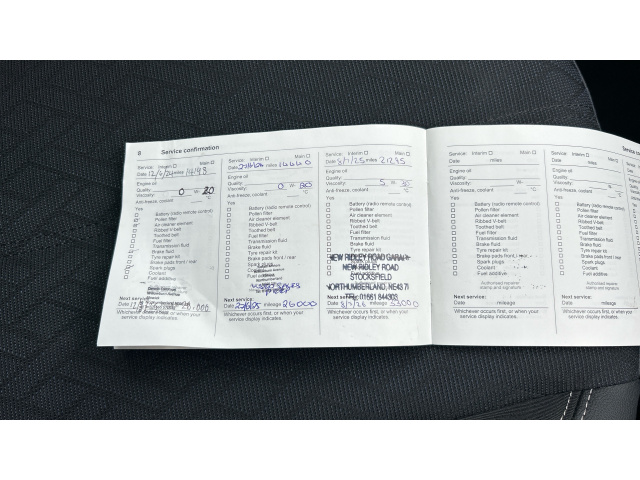 8 Service confirmation
Service: Interim Main
Date 12/6/24 miles 14193
Engine oil
Quality:
Viscosity: 0 W- 20
Anti-freeze, coolant °C
Yes
Battery (radio remote control)
Pollen filter
Air cleaner element
Ribbed V-belt
Toothed belt
Fuel filter
Transmission fluid
Brake fluid
Tyre repair kit
Brake pads front / rear
Spark plugs
Coolant
Fuel additive
Next service:
Whichever occurs first, or when your
service display indicates.
Service: Interim Main
Date miles 14440
Engine oil
Quality:
Viscosity: 0 W- 30
Anti-freeze, coolant °C
Yes
Battery (radio remote control)
Pollen filter
Air cleaner element
Ribbed V-belt
Toothed belt
Fuel filter
Transmission fluid
Brake fluid
Tyre repair kit
Brake pads front / rear
Spark plugs
Next service:
Date mileage 26000
Whichever occurs first, or when your
service display indicates.
Service: Interim Main
Date 8/7/25 miles 21295
Engine oil
Quality:
Viscosity: 5 W- 30
Anti-freeze, coolant °C
Yes
Battery (radio remote control)
Pollen filter
Air cleaner element
Ribbed V-belt
Toothed belt
Fuel filter
Transmission fluid
Brake fluid
NEW RIDLEY ROAD GARAGE
NEW RIDLEY ROAD
STOCKSFIELD
NORTHUMBERLAND, NE43 7
TEL: 01661 844303
Next service:
Date 8/7/26 mileage 33000
Whichever occurs first, or when your
service display indicates.
Service: Interim Main
Date miles
Engine oil
Quality:
Viscosity: W-
Anti-freeze, coolant °C
Yes
Battery (radio remote control)
Pollen filter
Air cleaner element
Ribbed V-belt
Toothed belt
Fuel filter
Transmission fluid
Brake fluid
Tyre repair kit
Brake pads front / rear
Spark plugs
Coolant
Fuel additive
Authorised repairer
stamp and signature
Next service:
Date mileage
Whichever occurs first, or when your
service display indicates.
Service: Interim
Date miles
Engine oil
Quality:
Viscosity: W-
Anti-freeze, coolant
Yes
Battery (radio remote
Pollen filter
Air cleaner element
Ribbed V-belt
Toothed belt
Fuel filter
Transmission fluid
Brake fluid
Tyre repair kit
Brake pads front / rear
Spark plugs
Coolant
Fuel additive
Authorised repairer
stamp and signature
Next service:
Date mileage
Whichever occurs first, or when
service display indicates.